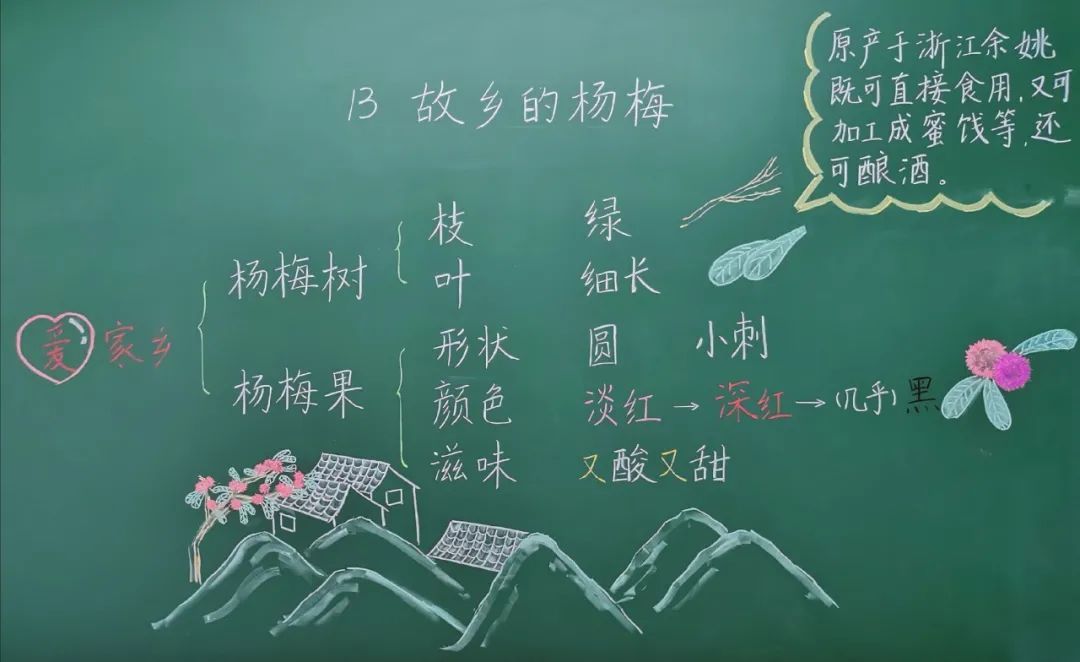 13 故乡的杨梅
原产于浙江余姚
既可直接食用,又可
加工成蜜饯等,还
可酿酒。
爱家乡
杨梅树
枝 绿
叶 细长
杨梅果
形状 圆 小刺
颜色 淡红→深红→(几乎)黑
滋味 又酸又甜